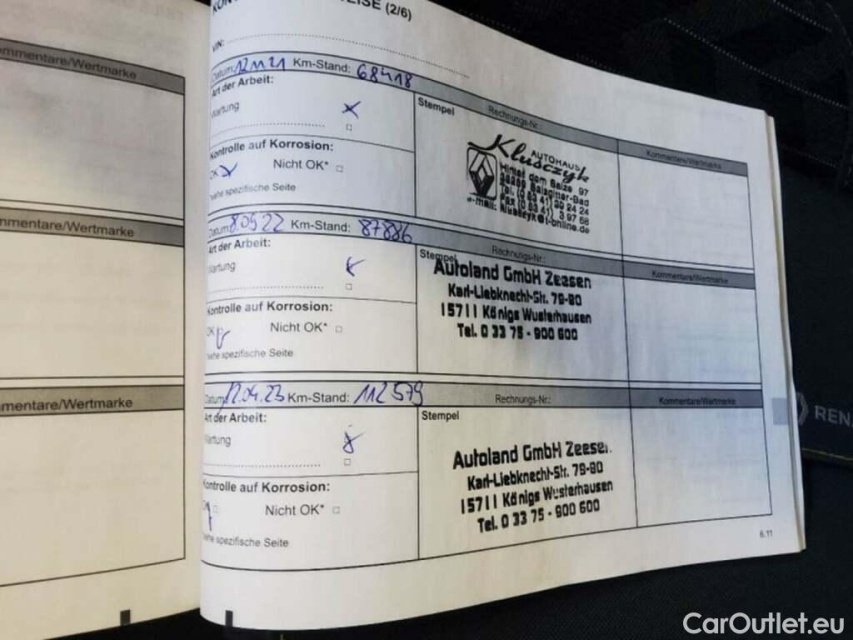 EISE (2/6)
VIN:
mmentare/Wertmarke
Datum: 12 11 21 Km-Stand: 68418
Art der Arbeit:
Wartung
Kontrolle auf Korrosion:
OK Nicht OK*
siehe spezifische Seite
Stempel
Rechnungs-Nr.:
Kommentare/Wertmarke
AUTOHAUS
Klusczyk
Hinter dem Salze 97
38259 Salzgitter-Bad
Tel. (0 53 41) 39 24 24
Fax (0 53 41) 3 97 68
mmentare/Wertmarke
Datum: 8.09.22 Km-Stand: 87886
Art der Arbeit:
Wartung
Kontrolle auf Korrosion:
OK Nicht OK*
siehe spezifische Seite
Stempel
Rechnungs-Nr.:
Kommentare/Wertmarke
Autoland GmbH Zeesen
Karl-Liebknecht-Str. 79-80
15711 Königs Wusterhausen
Tel. 0 33 75 - 900 600
mmentare/Wertmarke
Datum: 12.04.23 Km-Stand: 112 579
Art der Arbeit:
Wartung
Kontrolle auf Korrosion:
Nicht OK*
siehe spezifische Seite
Stempel
Rechnungs-Nr.:
Kommentare/Wertmarke
Autoland GmbH Zeesen
Karl-Liebknecht-Str. 79-80
15711 Königs Wusterhausen
Tel. 0 33 75 - 900 600
6.11
RENA
CarOutlet.eu